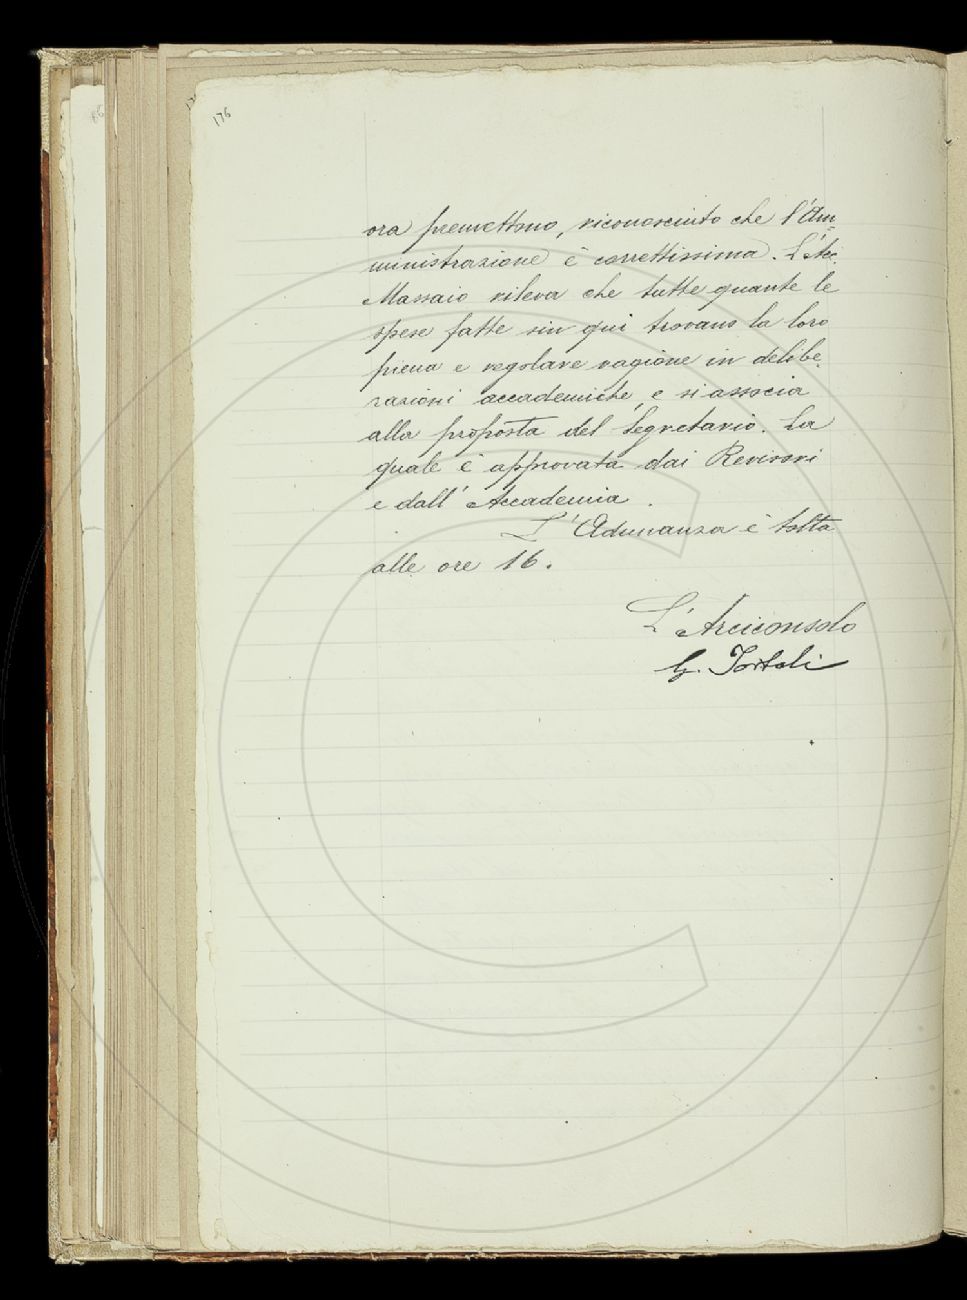 176
ora premettono, riconosciuto che l'Am=
ministrazione è correttissima. L'Arci
Massaio rileva che tutte quante le
spese fatte sin qui trovano la loro
piena e regolare ragione in delibe
razioni accademiche, e si associa
alla proposta del Segretario. La
quale è approvata dai Revisori
e dall'Accademia.
L'Adunanza è tolta
alle ore 16.
L'Arciconsolo
G. Tortoli